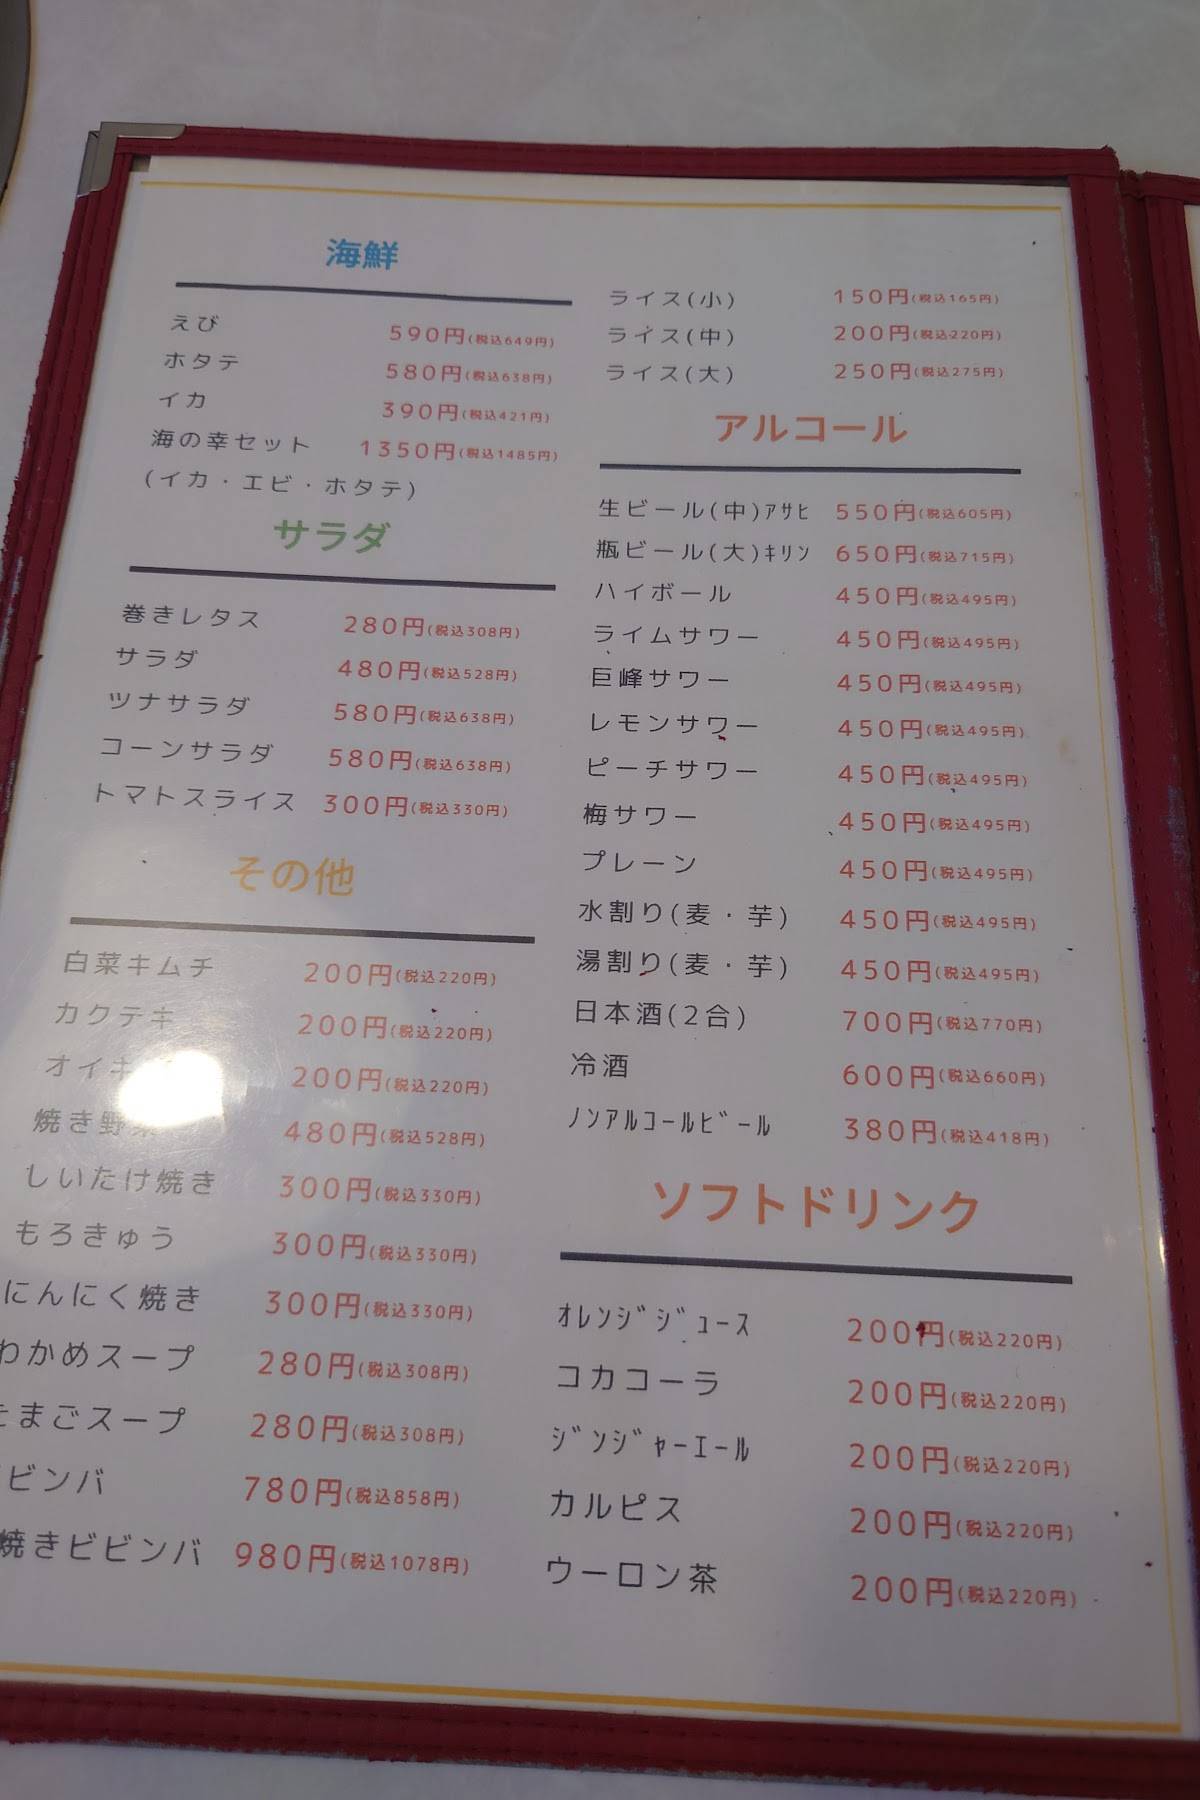 海鮮
えび 590円(税込649円)
ホタテ 580円(税込638円)
イカ 390円(税込421円)
海の幸セット 1350円(税込1485円)
(イカ・エビ・ホタテ)
サラダ
巻きレタス 280円(税込308円)
サラダ 480円(税込528円)
ツナサラダ 580円(税込638円)
コーンサラダ 580円(税込638円)
トマトスライス 300円(税込330円)
その他
白菜キムチ 200円(税込220円)
カクテキ 200円(税込220円)
オイキ 200円(税込220円)
焼き野菜 480円(税込528円)
しいたけ焼き 300円(税込330円)
もろきゅう 300円(税込330円)
にんにく焼き 300円(税込330円)
わかめスープ 280円(税込308円)
たまごスープ 280円(税込308円)
ビビンバ 780円(税込858円)
焼きビビンバ 980円(税込1078円)
ライス(小) 150円(税込165円)
ライス(中) 200円(税込220円)
ライス(大) 250円(税込275円)
アルコール
生ビール(中)ｱｻﾋ 550円(税込605円)
瓶ビール(大)ｷﾘﾝ 650円(税込715円)
ハイボール 450円(税込495円)
ライムサワー 450円(税込495円)
巨峰サワー 450円(税込495円)
レモンサワー 450円(税込495円)
ピーチサワー 450円(税込495円)
梅サワー 450円(税込495円)
プレーン 450円(税込495円)
水割り(麦・芋) 450円(税込495円)
湯割り(麦・芋) 450円(税込495円)
日本酒(2合) 700円(税込770円)
冷酒 600円(税込660円)
ﾉﾝｱﾙｺｰﾙﾋﾞｰﾙ 380円(税込418円)
ソフトドリンク
ｵﾚﾝｼﾞｼﾞｭｰｽ 200円(税込220円)
コカコーラ 200円(税込220円)
ｼﾞﾝｼﾞｬｰｴｰﾙ 200円(税込220円)
カルピス 200円(税込220円)
ウーロン茶 200円(税込220円)